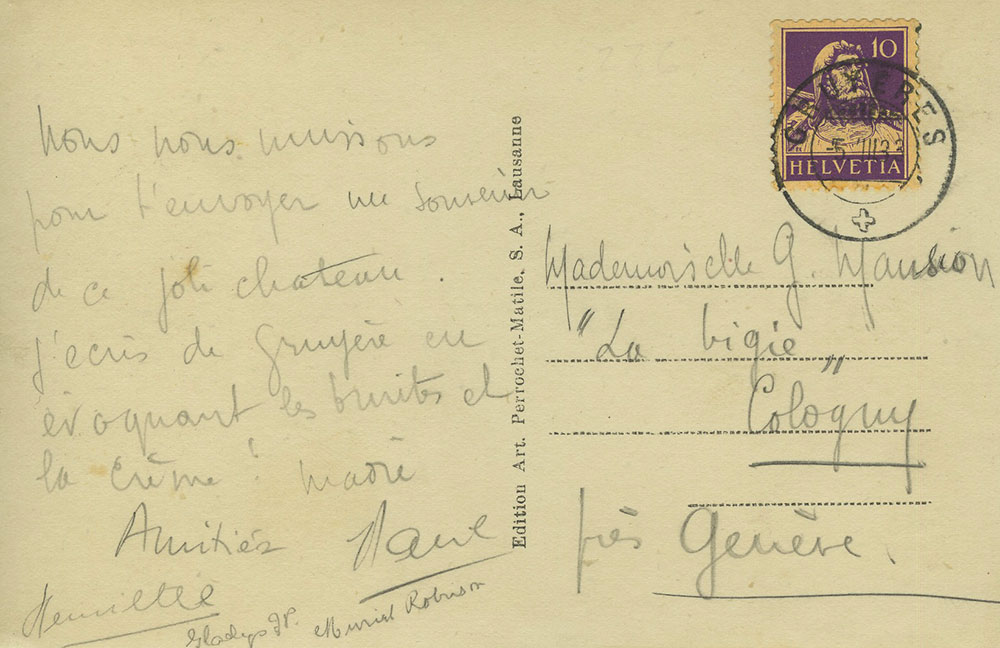 Nous nous unissons
pour t'envoyer un souvenir
de ce joli chateau.
J'ecris de Gruyère en
évoquant les truites et
la crème!
Amitiés
Henriette
Gladys
Muriel Robinson
Edition Art. Perrochet-Matile, S. A., Lausanne
10
HELVETIA
GRUYERES
Mademoiselle G. Mansion
"La vigie"
Cologny
près Genève.